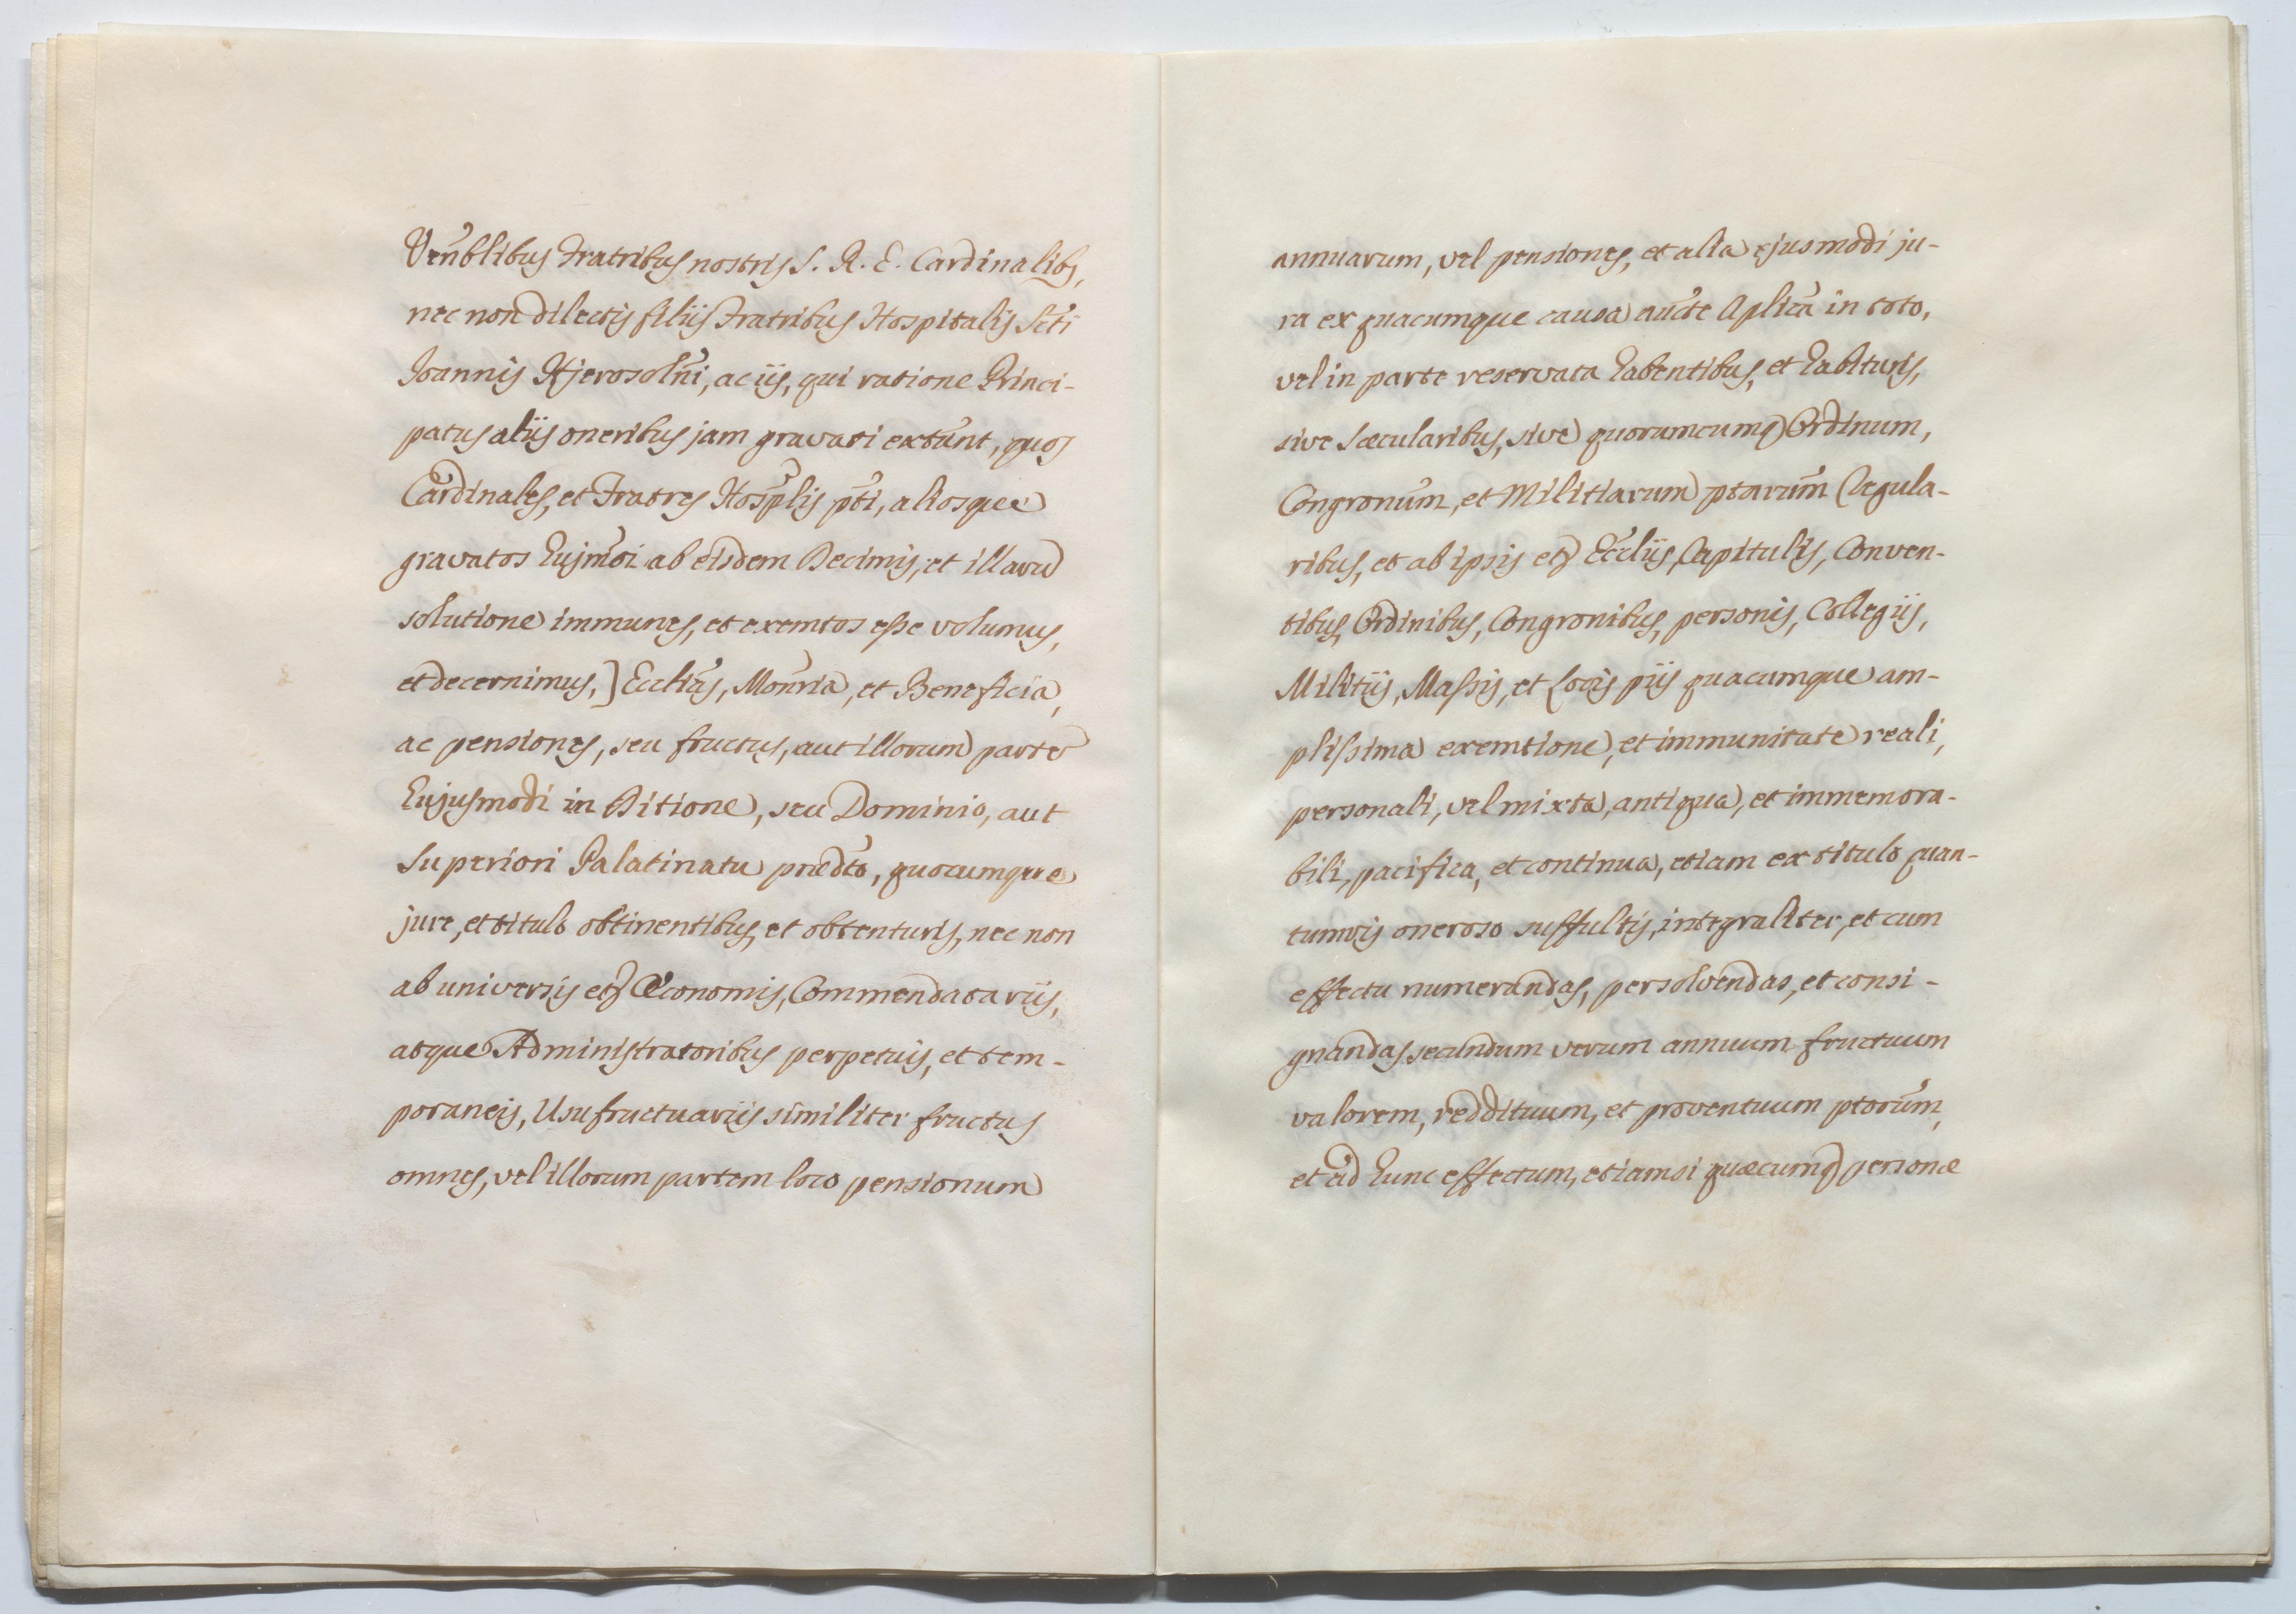 Venb̄libus Fratribus nostris S. R. E. Cardinalibs,
nec non dilectis filiis Fratribus Hospitalis Sc̄ti
Joannis Hjerosolm̄i, ac iis, qui ratione Princi-
patus aliis oneribus jam gravati extunt, quos
Cardinales, et Fratres Hosp̄lis pt̄i, aliosque
gravatos hujmōi ab eisdem Decimis, et illarū
solutione immunes, et exemtos esse volumus,
et decernimus,] Eccliās, Mon̄ria, et Beneficia,
ac pensiones, seu fructus, aut illorum partē
hujusmodi in Ditione, seu Dominio, aut
Superiori Palatinatu prædt̄o, quocumque
jure, et titulo obtinentibus, et obtenturis, nec non
ab universis etȝ Œconomis, Commendatariis,
atque Administratoribus perpetuis, et tem-
poraneis, Usufructuariis similiter fructus
omnes, vel illorum partem loco pensionum
annuarum, vel pensiones, et alia ejusmodi ju-
ra ex quacumque causa auc̄te Aplicā in toto,
vel in parte reservata habentibus, et habituris,
sive Sæcularibus, sive quorumcumqȝ Ordinum,
Congronūm, et Militiarum ptarūm Regula-
ribus, et ab ipsis etȝ Ecc̄liis, Capitulis, Conven-
tibus, Ordinibus, Congronibus, personis, Collegiis,
Militiis, Massis, et Locis piis quacumque am-
plissima exemtione, et immunitate reali,
personali, vel mixta, antiqua, et immemora-
bili, pacifica, et continua, etiam ex titulo quan-
tumvis oneroso suffultis, integraliter, et cum
effectu numerandas, persolvendas, et consi-
gnandas secundum verum annuum fructuum
valorem, reddituum, et proventuum ptorūm,
et ad hunc effectum, etiamsi quæcumqȝ personæ